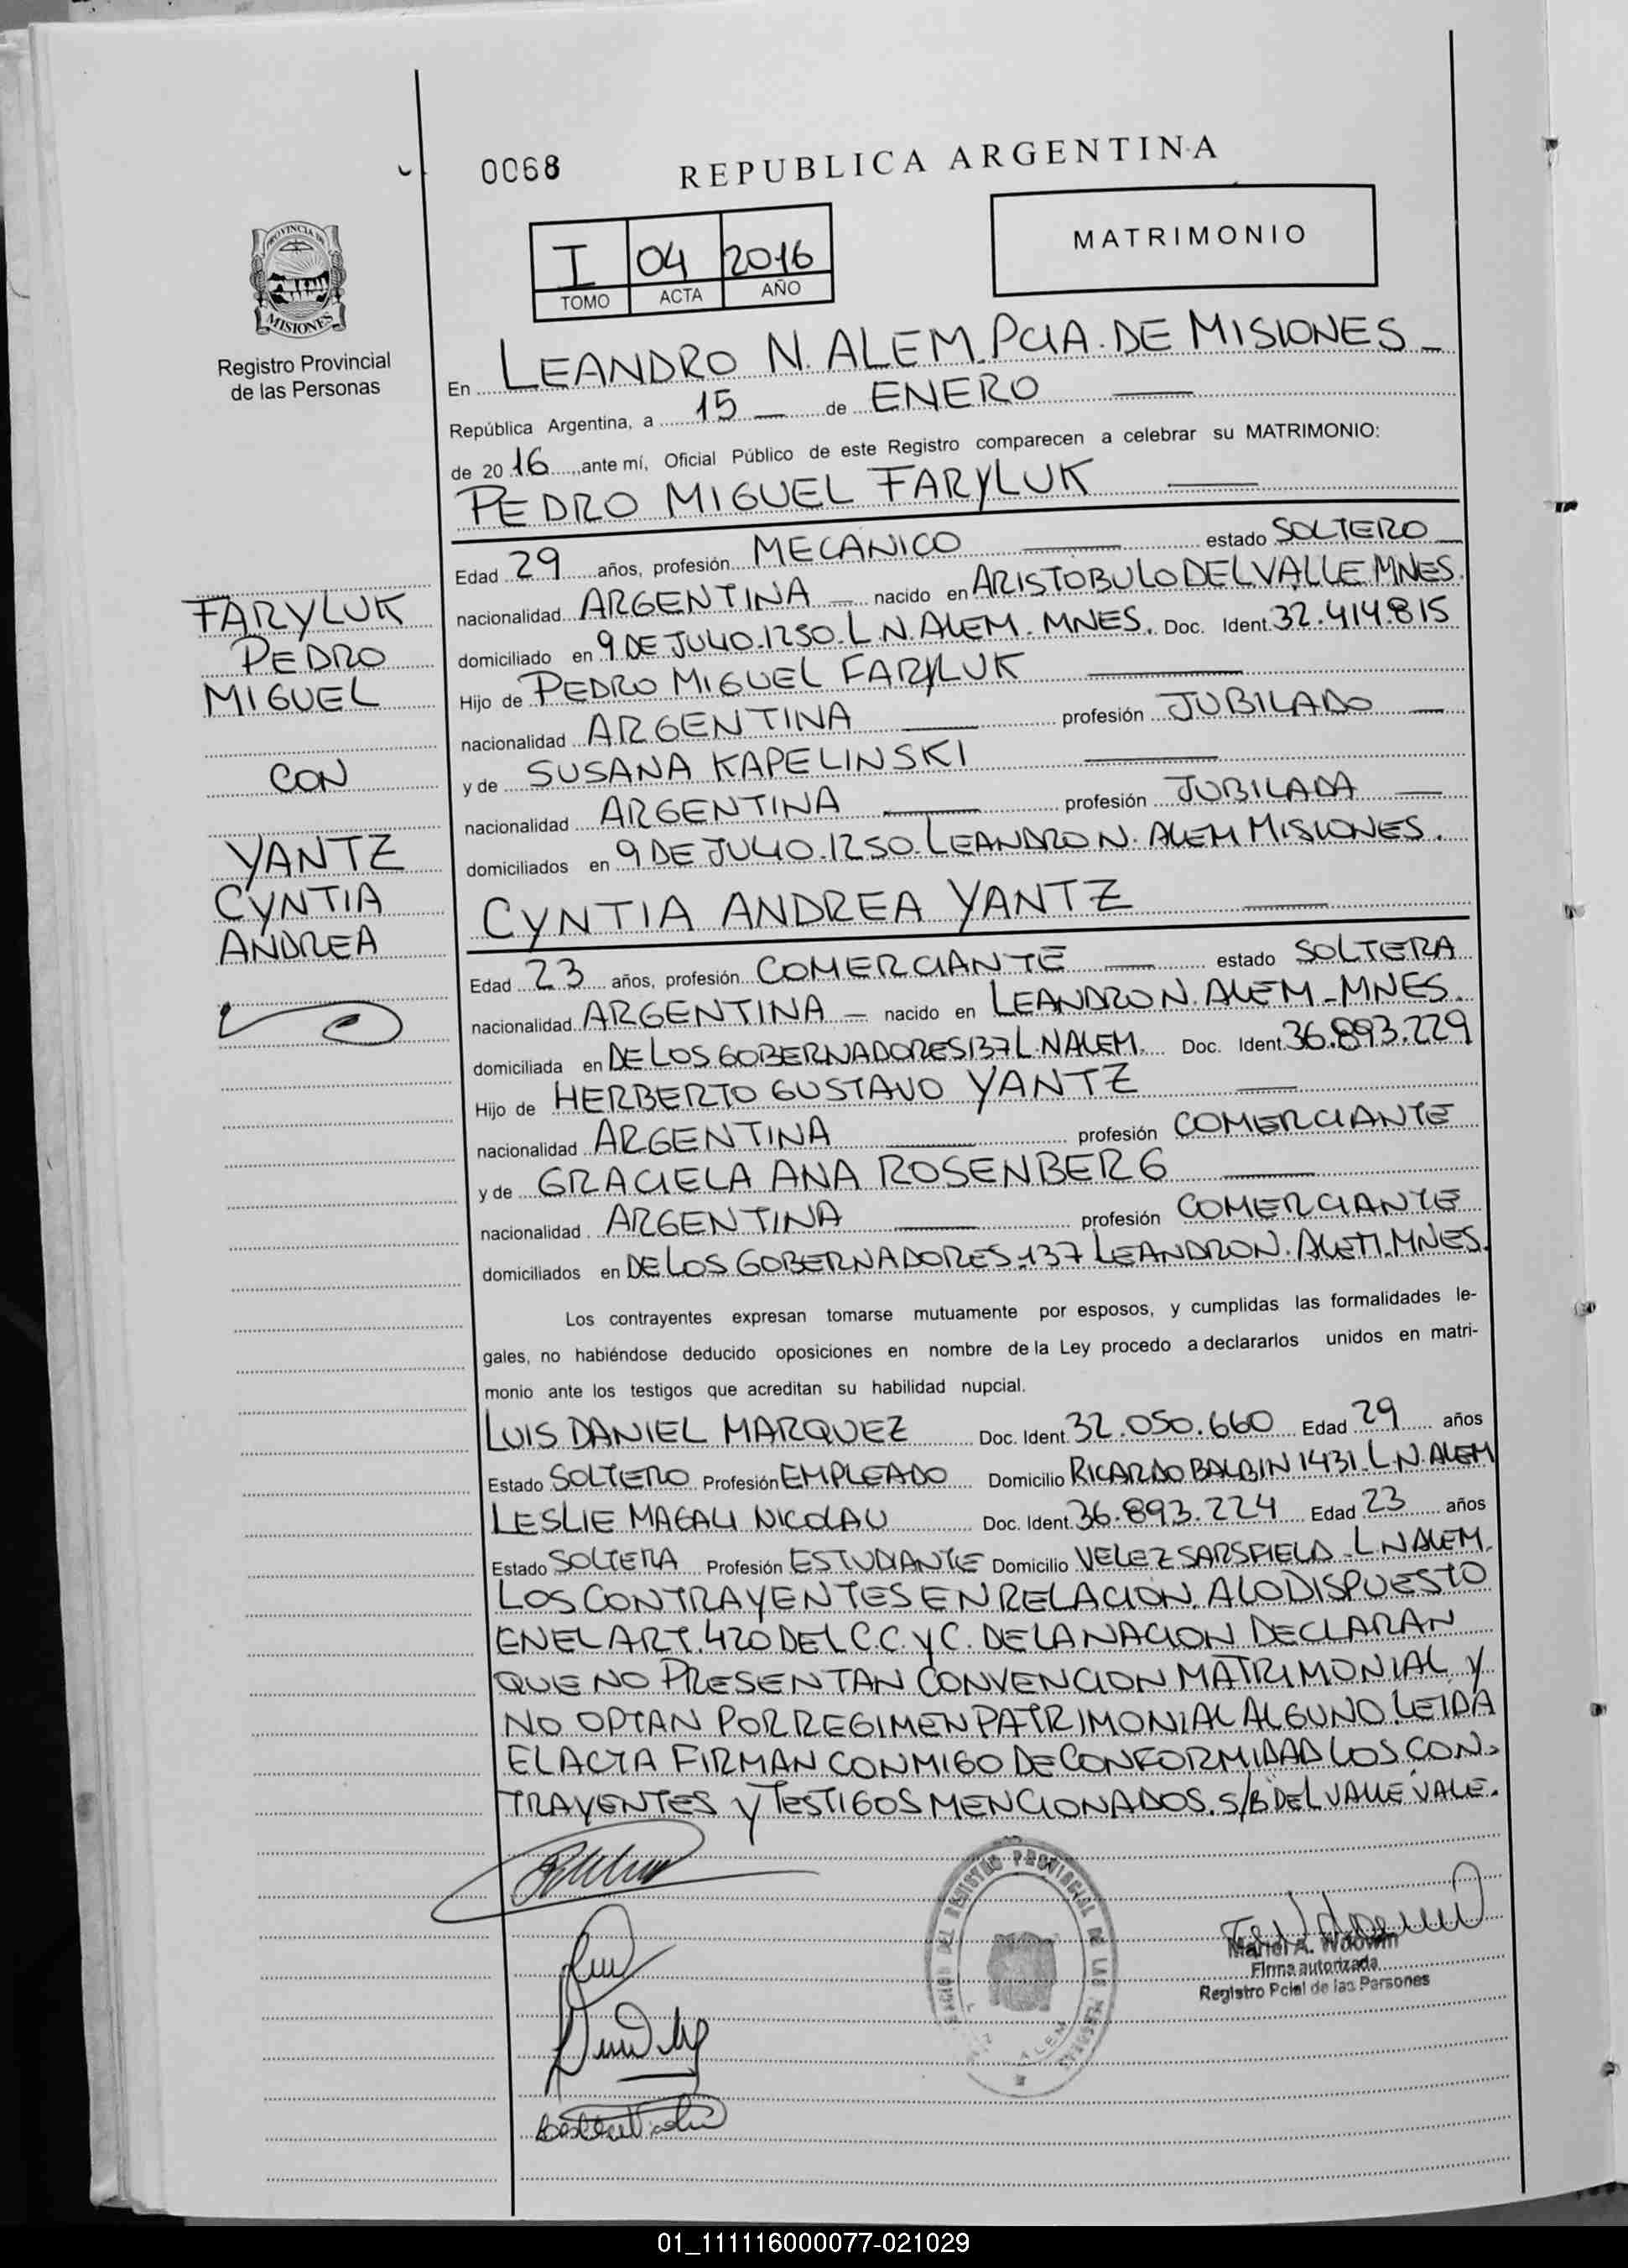 0068
REPUBLICA ARGENTINA
PROVINCIA DE
MISIONES
Registro Provincial
de las Personas
I 04 2016
TOMO ACTA AÑO
MATRIMONIO
En LEANDRO N. ALEM. PCIA. DE MISIONES
República Argentina, a 15 de ENERO
de 2016, ante mí, Oficial Público de este Registro comparecen a celebrar su MATRIMONIO:
PEDRO MIGUEL FARYLUK
Edad 29 años, profesión MECANICO estado SOLTERO
nacionalidad ARGENTINA nacido en ARISTOBULO DEL VALLE MNES.
domiciliado en 9 DE JULIO.1250. L N. ALEM. MNES. Doc. Ident. 32.414.815
Hijo de PEDRO MIGUEL FARYLUK
nacionalidad ARGENTINA profesión JUBILADO
y de SUSANA KAPELINSKI
nacionalidad ARGENTINA profesión JUBILADA
domiciliados en 9 DE JULIO.1250. LEANDRO N. ALEM MISIONES.
FARYLUK
PEDRO
MIGUEL
CON
YANTZ
CYNTIA
ANDREA
CYNTIA ANDREA YANTZ
Edad 23 años, profesión COMERCIANTE estado SOLTERA
nacionalidad ARGENTINA nacido en LEANDRO N. ALEM - MNES.
domiciliada en DE LOS GOBERNADORES 137 L. N ALEM. Doc. Ident. 36.893.229
Hijo de HERBERTO GUSTAVO YANTZ
nacionalidad ARGENTINA profesión COMERCIANTE
y de GRACIELA ANA ROSENBERG
nacionalidad ARGENTINA profesión COMERCIANTE
domiciliados en DE LOS GOBERNADORES-137 LEANDRO N. ALEM. MNES.
Los contrayentes expresan tomarse mutuamente por esposos, y cumplidas las formalidades le-
gales, no habiéndose deducido oposiciones en nombre de la Ley procedo a declararlos unidos en matri-
monio ante los testigos que acreditan su habilidad nupcial.
LUIS DANIEL MARQUEZ Doc. Ident. 32.050.660 Edad 29 años
Estado SOLTERO Profesión EMPLEADO Domicilio RICARDO BALBIN 1431. L N. ALEM
LESLIE MAGALI NICOLAU Doc. Ident. 36.893.224 Edad 23 años
Estado SOLTERA Profesión ESTUDIANTE Domicilio VELEZ SARSFIELD - L N ALEM.
LOS CONTRAYENTES EN RELACION A LO DISPUESTO
EN EL ART. 420 DEL C.C. Y C. DE LA NACION DECLARAN
QUE NO PRESENTAN CONVENCION MATRIMONIAL Y
NO OPTAN POR REGIMEN PATRIMONIAL ALGUNO. LEIDA
EL ACTA FIRMAN CONMIGO DE CONFORMIDAD LOS CON-
TRAYENTES Y TESTIGOS MENCIONADOS. S/B DEL VALLE VALE.
DEL REGISTRO PROVINCIAL DE LAS PERSONAS
ALEM
Mariel A. Wdowin
Firma autorizada
Registro Pcial de las Personas
01_111116000077-021029